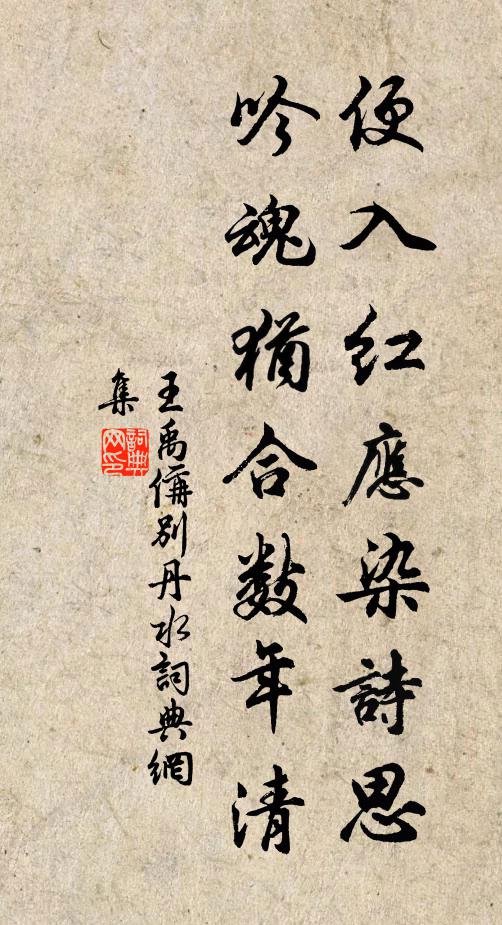 便入紅應染詩思
吟魂猶合數年清
王禹偁別丹水詞典網
集
詞典网印